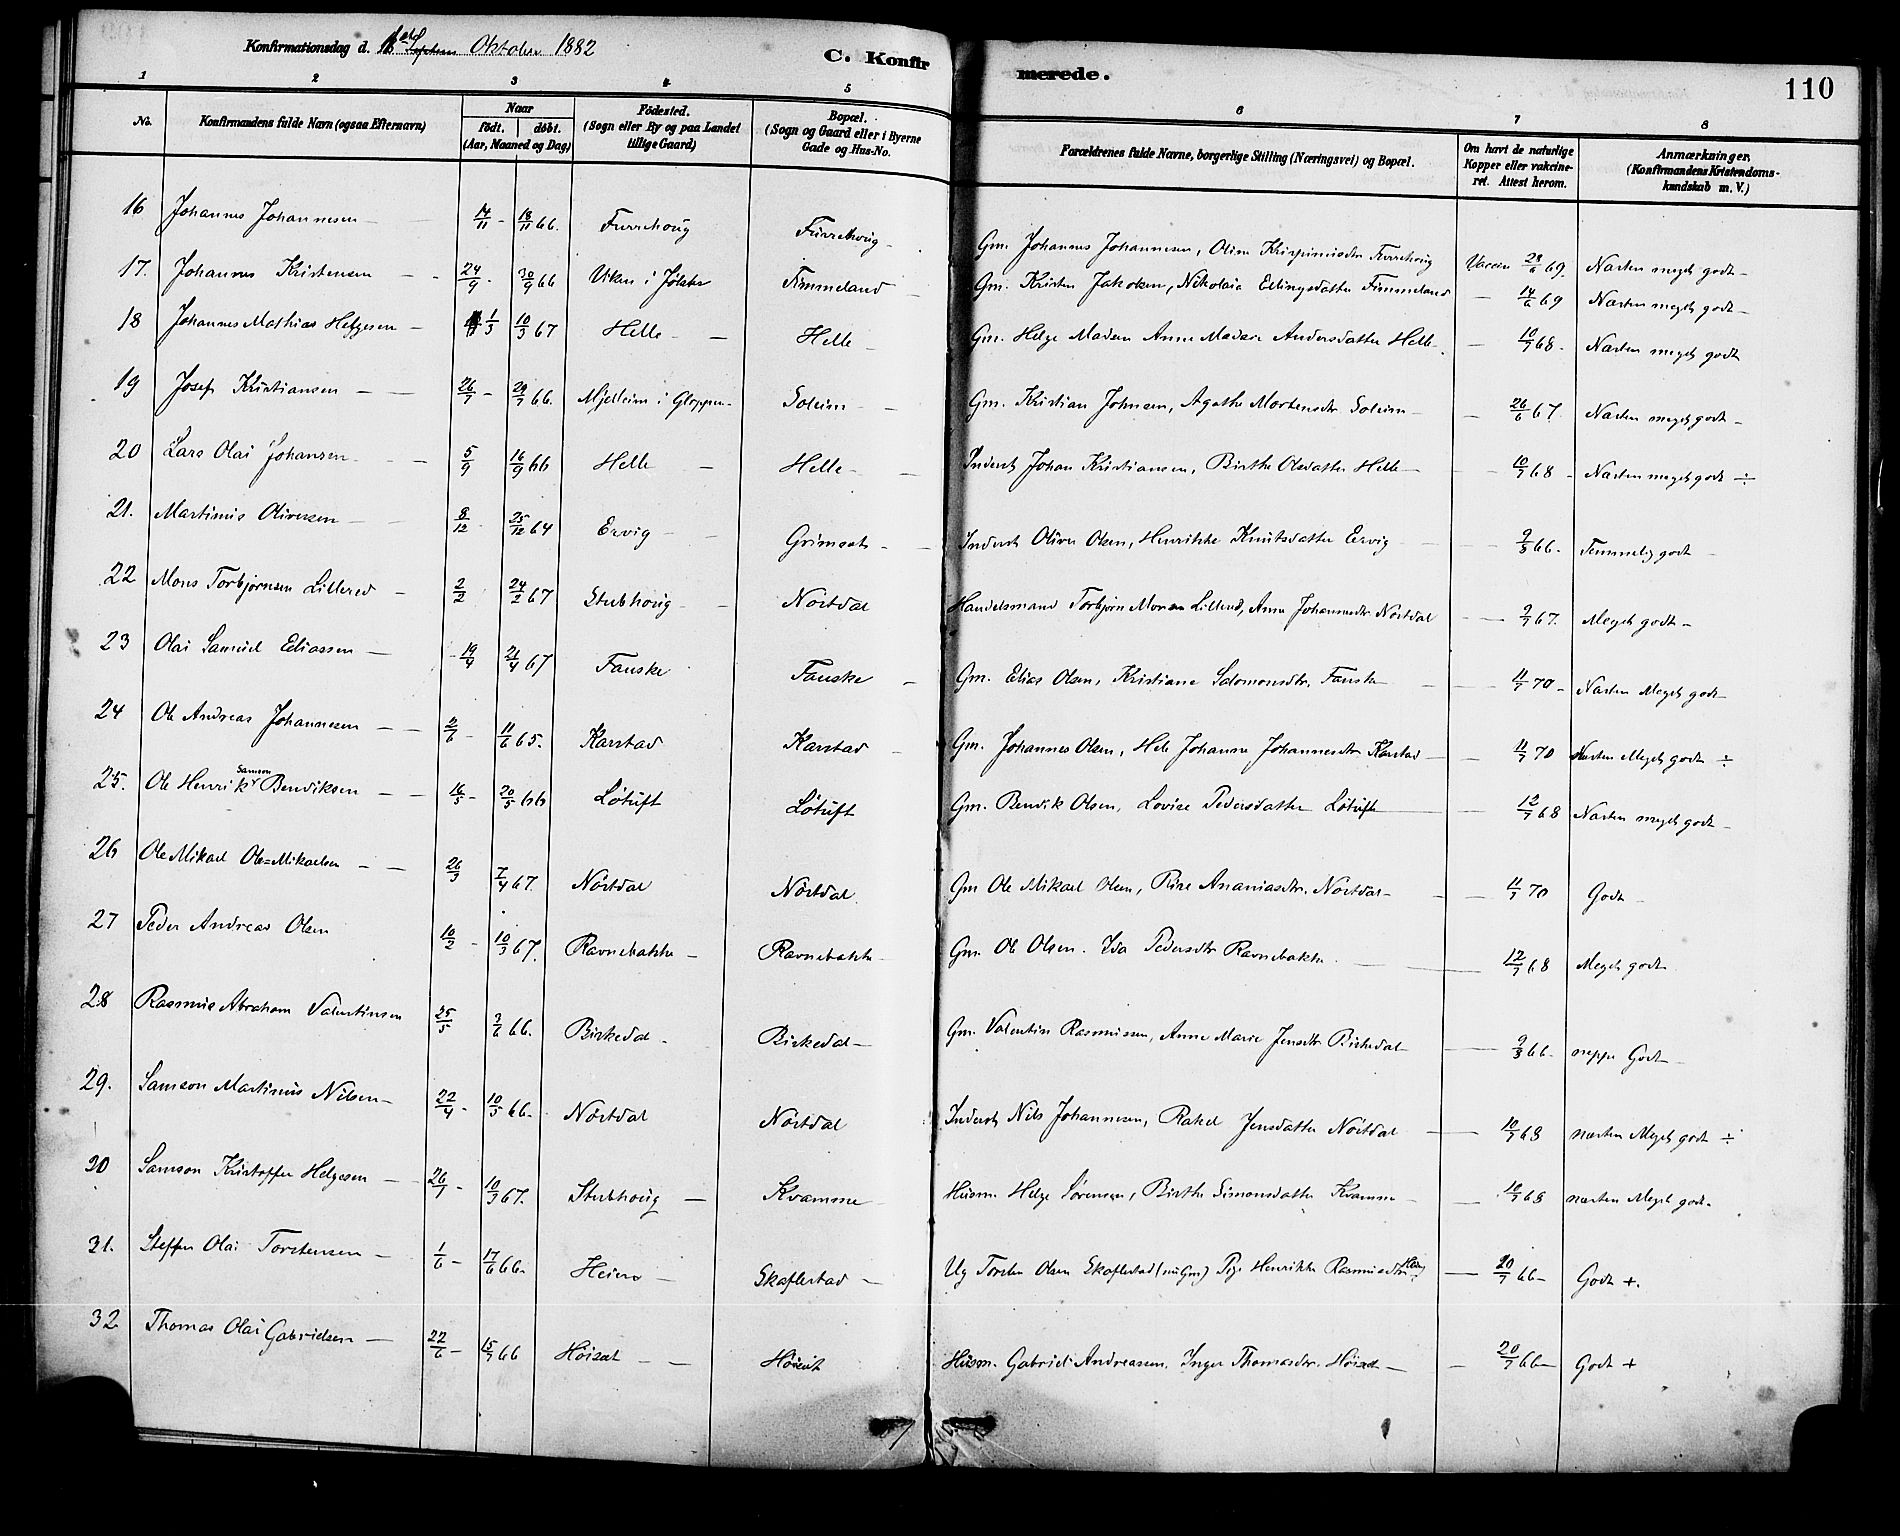 Konfirmationsdag d. 1ste Oktober 1882
C. Konfirmerede.
110
1 2 3 4 5 6 7 8
No. Konfirmandens fulde Navn (ogsaa Efternavn) Naar født. døbt. (Aar, Maaned og Dag) Fødested. (Sogn eller By og paa Landet tillige Gaard) Bopæl. (Sogn og Gaard eller i Byerne Gade og Hus-No. Forældrenes fulde Navne, borgerlige Stilling (Næringsvei) og Bopæl. Om havt de naturlige Kopper eller vakcineret. Attest herom. Anmærkninger. (Konfirmandens Kristendomskundskab m. V.)
16 Johannes Johannesen 14/11 - 18/11 66. Furrehoug Furrehoug Gm. Johannes Johannesen, Oline Krispinusdtr Furrehoug Vaccin 28/6 69. Næsten meget godt
17. Johannes Kristensen 24/9 - 30/9 66 Viken i Jølster Fimmeland Gm. Kristen Jakobsen, Nikolaia Ellingsdatter Fimmeland 14/6 69 Næsten meget godt
18 Johannes Mathias Helgesen 1/3 10/3 67 Helle Helle Gm. Helge Madsen Anne Marie Andersdatter Helle 10/7 68 Næsten meget godt
19 Josef Kristiansen 26/7 - 29/7 66. Mjelleim i Gloppen Soleim Gm. Kristian Johnsen, Agathe Mortensdtr. Soleim 26/6 67. Næsten meget godt
20 Lars Olai Johansen 5/9 16/9 66 Helle Helle Inderst Johan Kristiansen, Birthe Olsdatter Helle 10/7 68 Næsten meget godt ÷
21. Martinus Oliversen 8/12 25/12 64 Ervig Grimset Inderst Oliver Olsen, Henrikke Knutsdatter Ervig 9/8 66. Temmelig godt
22 Mons Torbjørnsen Lillered 2/2 24/2 67 Stubhoug Nørtdal Handelsmand Torbjørn Monsen Lillered, Anne Johannesdtr Nørtdal 9/7 67. Meget godt
23 Olai Samuel Eliassen 19/4 21/4 67 Fauske Fauske Gm. Elias Olsen, Kristiane Salomonsdtr. Fauske 11/7 70 Næsten Meget godt
24 Ole Andreas Johannesen 2/6 - 11/6 65. Karstad Karstad Gm. Johannes Olsen, Hele Johanne Johannesdtr Karstad 11/7 70 Næsten Meget godt ÷
25. Ole Henrik Samson Bendiksen 16/5 - 20/5 66 Løtuft Løtuft Gm. Bendik Olsen, Lovise Pedersdatter Løtuft 12/7 68 Næsten meget godt
26 Ole Mikael Ole-Mikaelsen 26/3 7/4 67. Nørtdal Nørtdal. Gm Ole Mikael Olsen, Rine Ananiasdtr. Nørtdal 11/7 70 Godt
27 Peder Andreas Olsen 10/2 - 10/3 67. Ravnebakke Ravnebakke Gm. Ole Olsen. Ida Pedersdtr Ravnebakke 12/7 68 Meget godt
28 Rasmus Abraham Valentinsen 25/5 3/6 66. Birkedal Birkedal Gm. Valentin Rasmussen, Anne Marie Jensdtr Birkedal 9/8 66. neppe Godt
29. Samson Martinus Nilsen 22/4 - 10/5 66. Nørtdal Nørtdal Inderst Nils Johannesen, Rakel Jensdatter Nørtdal 10/7 68 næsten Meget godt ÷
30 Samson Kristoffer Helgesen 26/1 - 10/3 67. Stubhoug Kvamme Husm. Helge Sørensen, Birthe Simonsdatter Kvamme 10/7 68 næsten Meget godt
31. Steffen Olai Torstensen 1/6 - 17/6 66. Heiero Skaflestad Ug Torsten Olsen Skaflestad (nu Gm) Pige Henrikke Rasmusdtr 20/7 66 Godt +.
32 Thomas Olai Gabrielsen 22/6 - 15/7 66 Høiset Høiset Husm. Gabriel Andreassen. Inger Thomasdtr. Høiset 20/7 66 Godt +